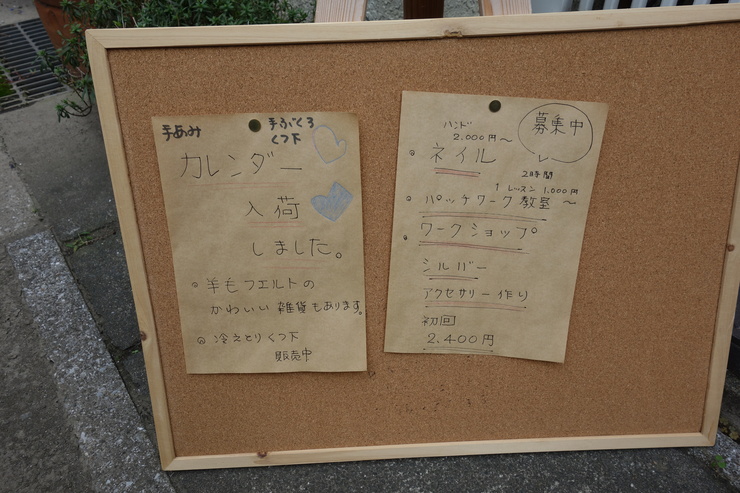 手あみ
手ぶくろ
くつ下
カレンダー
入荷
しました。
羊毛フエルトの
かわいい雑貨もあります。
冷えとりくつ下
販売中
募集中
ハンド
2.000円〜
ネイル
2時間
1レッスン 1.000円
パッチワーク教室 〜
ワークショップ
シルバー
アクセサリー作り
初回
2.400円